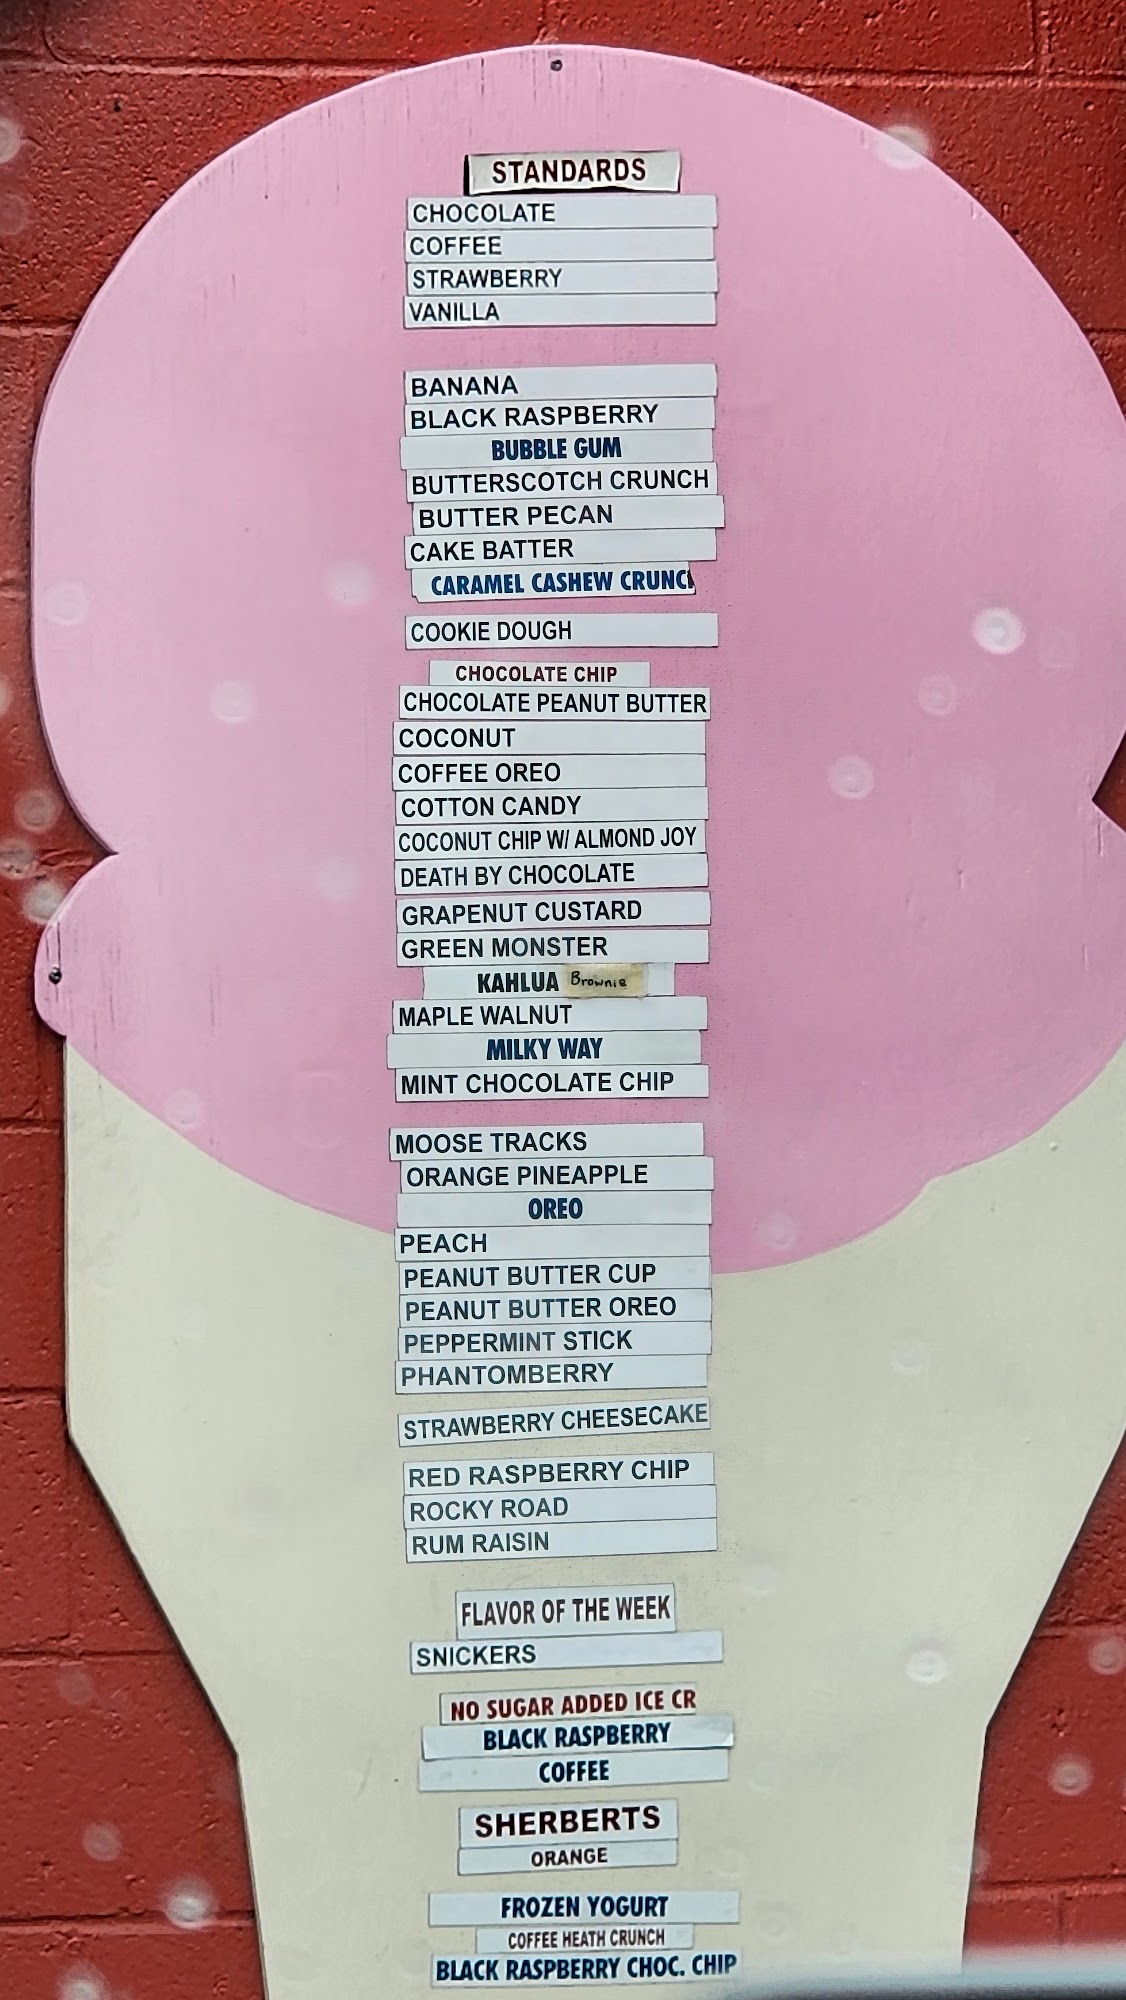 STANDARDS
CHOCOLATE
COFFEE
STRAWBERRY
VANILLA
BANANA
BLACK RASPBERRY
BUBBLE GUM
BUTTERSCOTCH CRUNCH
BUTTER PECAN
CAKE BATTER
CARAMEL CASHEW CRUNC
COOKIE DOUGH
CHOCOLATE CHIP
CHOCOLATE PEANUT BUTTER
COCONUT
COFFEE OREO
COTTON CANDY
COCONUT CHIP W/ ALMOND JOY
DEATH BY CHOCOLATE
GRAPENUT CUSTARD
GREEN MONSTER
KAHLUA Brownie
MAPLE WALNUT
MILKY WAY
MINT CHOCOLATE CHIP
MOOSE TRACKS
ORANGE PINEAPPLE
OREO
PEACH
PEANUT BUTTER CUP
PEANUT BUTTER OREO
PEPPERMINT STICK
PHANTOMBERRY
STRAWBERRY CHEESECAKE
RED RASPBERRY CHIP
ROCKY ROAD
RUM RAISIN
FLAVOR OF THE WEEK
SNICKERS
NO SUGAR ADDED ICE CR
BLACK RASPBERRY
COFFEE
SHERBERTS
ORANGE
FROZEN YOGURT
COFFEE HEATH CRUNCH
BLACK RASPBERRY CHOC. CHIP